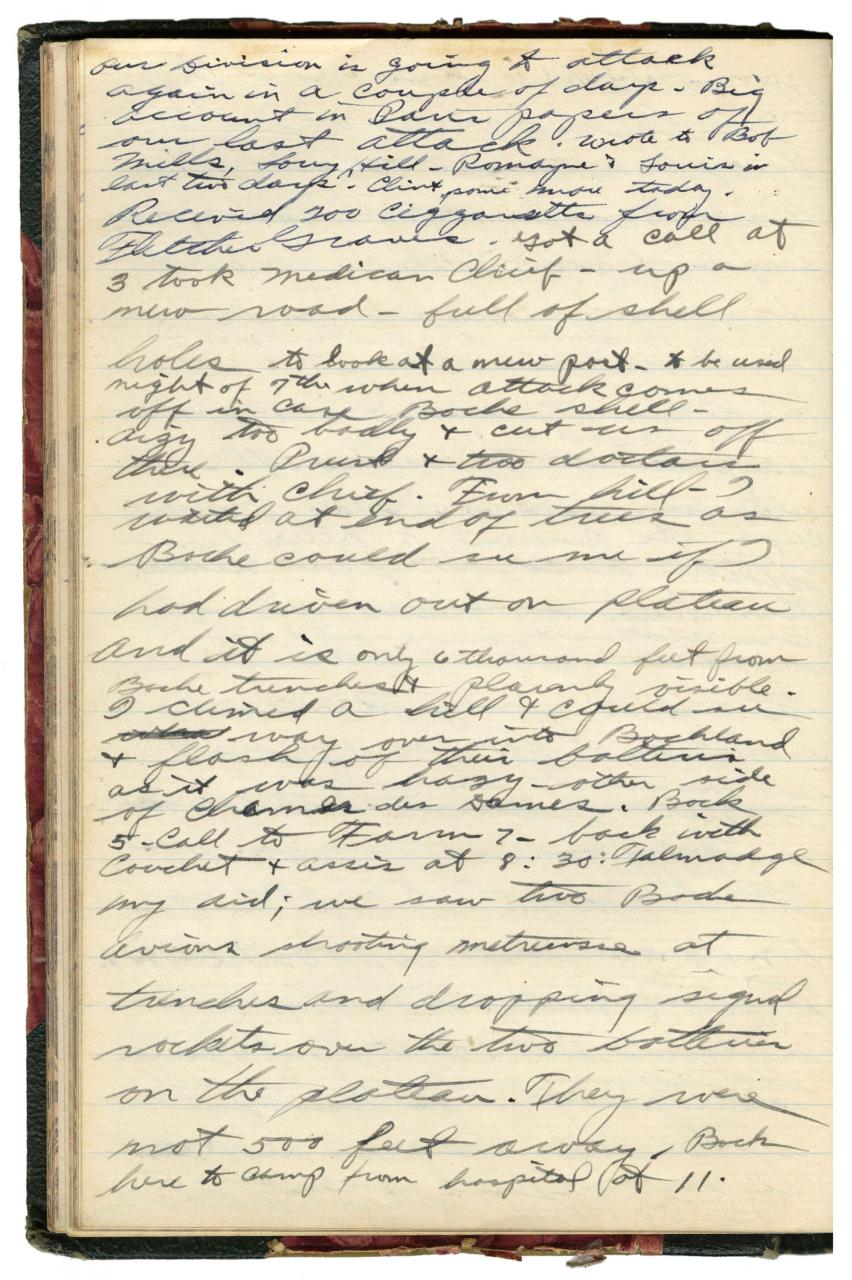 our Division is going to attack
again in a couple of days - Big
account in Paris papers of
our last attack. Wrote to Bob
Mills, Hill - Romayne & Louis in
last two days, some more today.
Received 200 Ciggarettes from
Fletcher Graves. Got a call at
3 took Medican Chief - up a
new road - full of shell
holes to look at a new post - to be used
night of 7th when attack comes
off in case Boche shell-
aizy too badly & cut us off
there. & two doctors
with Chief. From hill - I
waited at end of trees as
Boche could see me if I
had driven out on plateau
and it is only 6 thousand feet from
Boche trenches & plaenly visible.
I climed a hill & could see
way over into Bocheland
& flash of their batteries
as it was hazy - other side
of Chemes des Dames. Back
5 - Call to Farm 7 - back with
Couchet & assis at 8:30: Talmadge
my aid; we saw two Boche
avions shooting metreusse at
trenches and dropping signal
rockets over the two batteries
on the plateau. They were
not 500 feet away. Back
here to camp from hospital at 11.